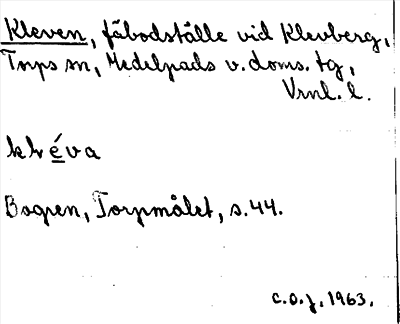 Kleven, fäbodställe vid Klevberg,
Torps sn, Medelpads v. doms. tg,
Vrnl. l.
kléva
Bogren, Torpmålet, s. 44.
C.O.J. 1963.